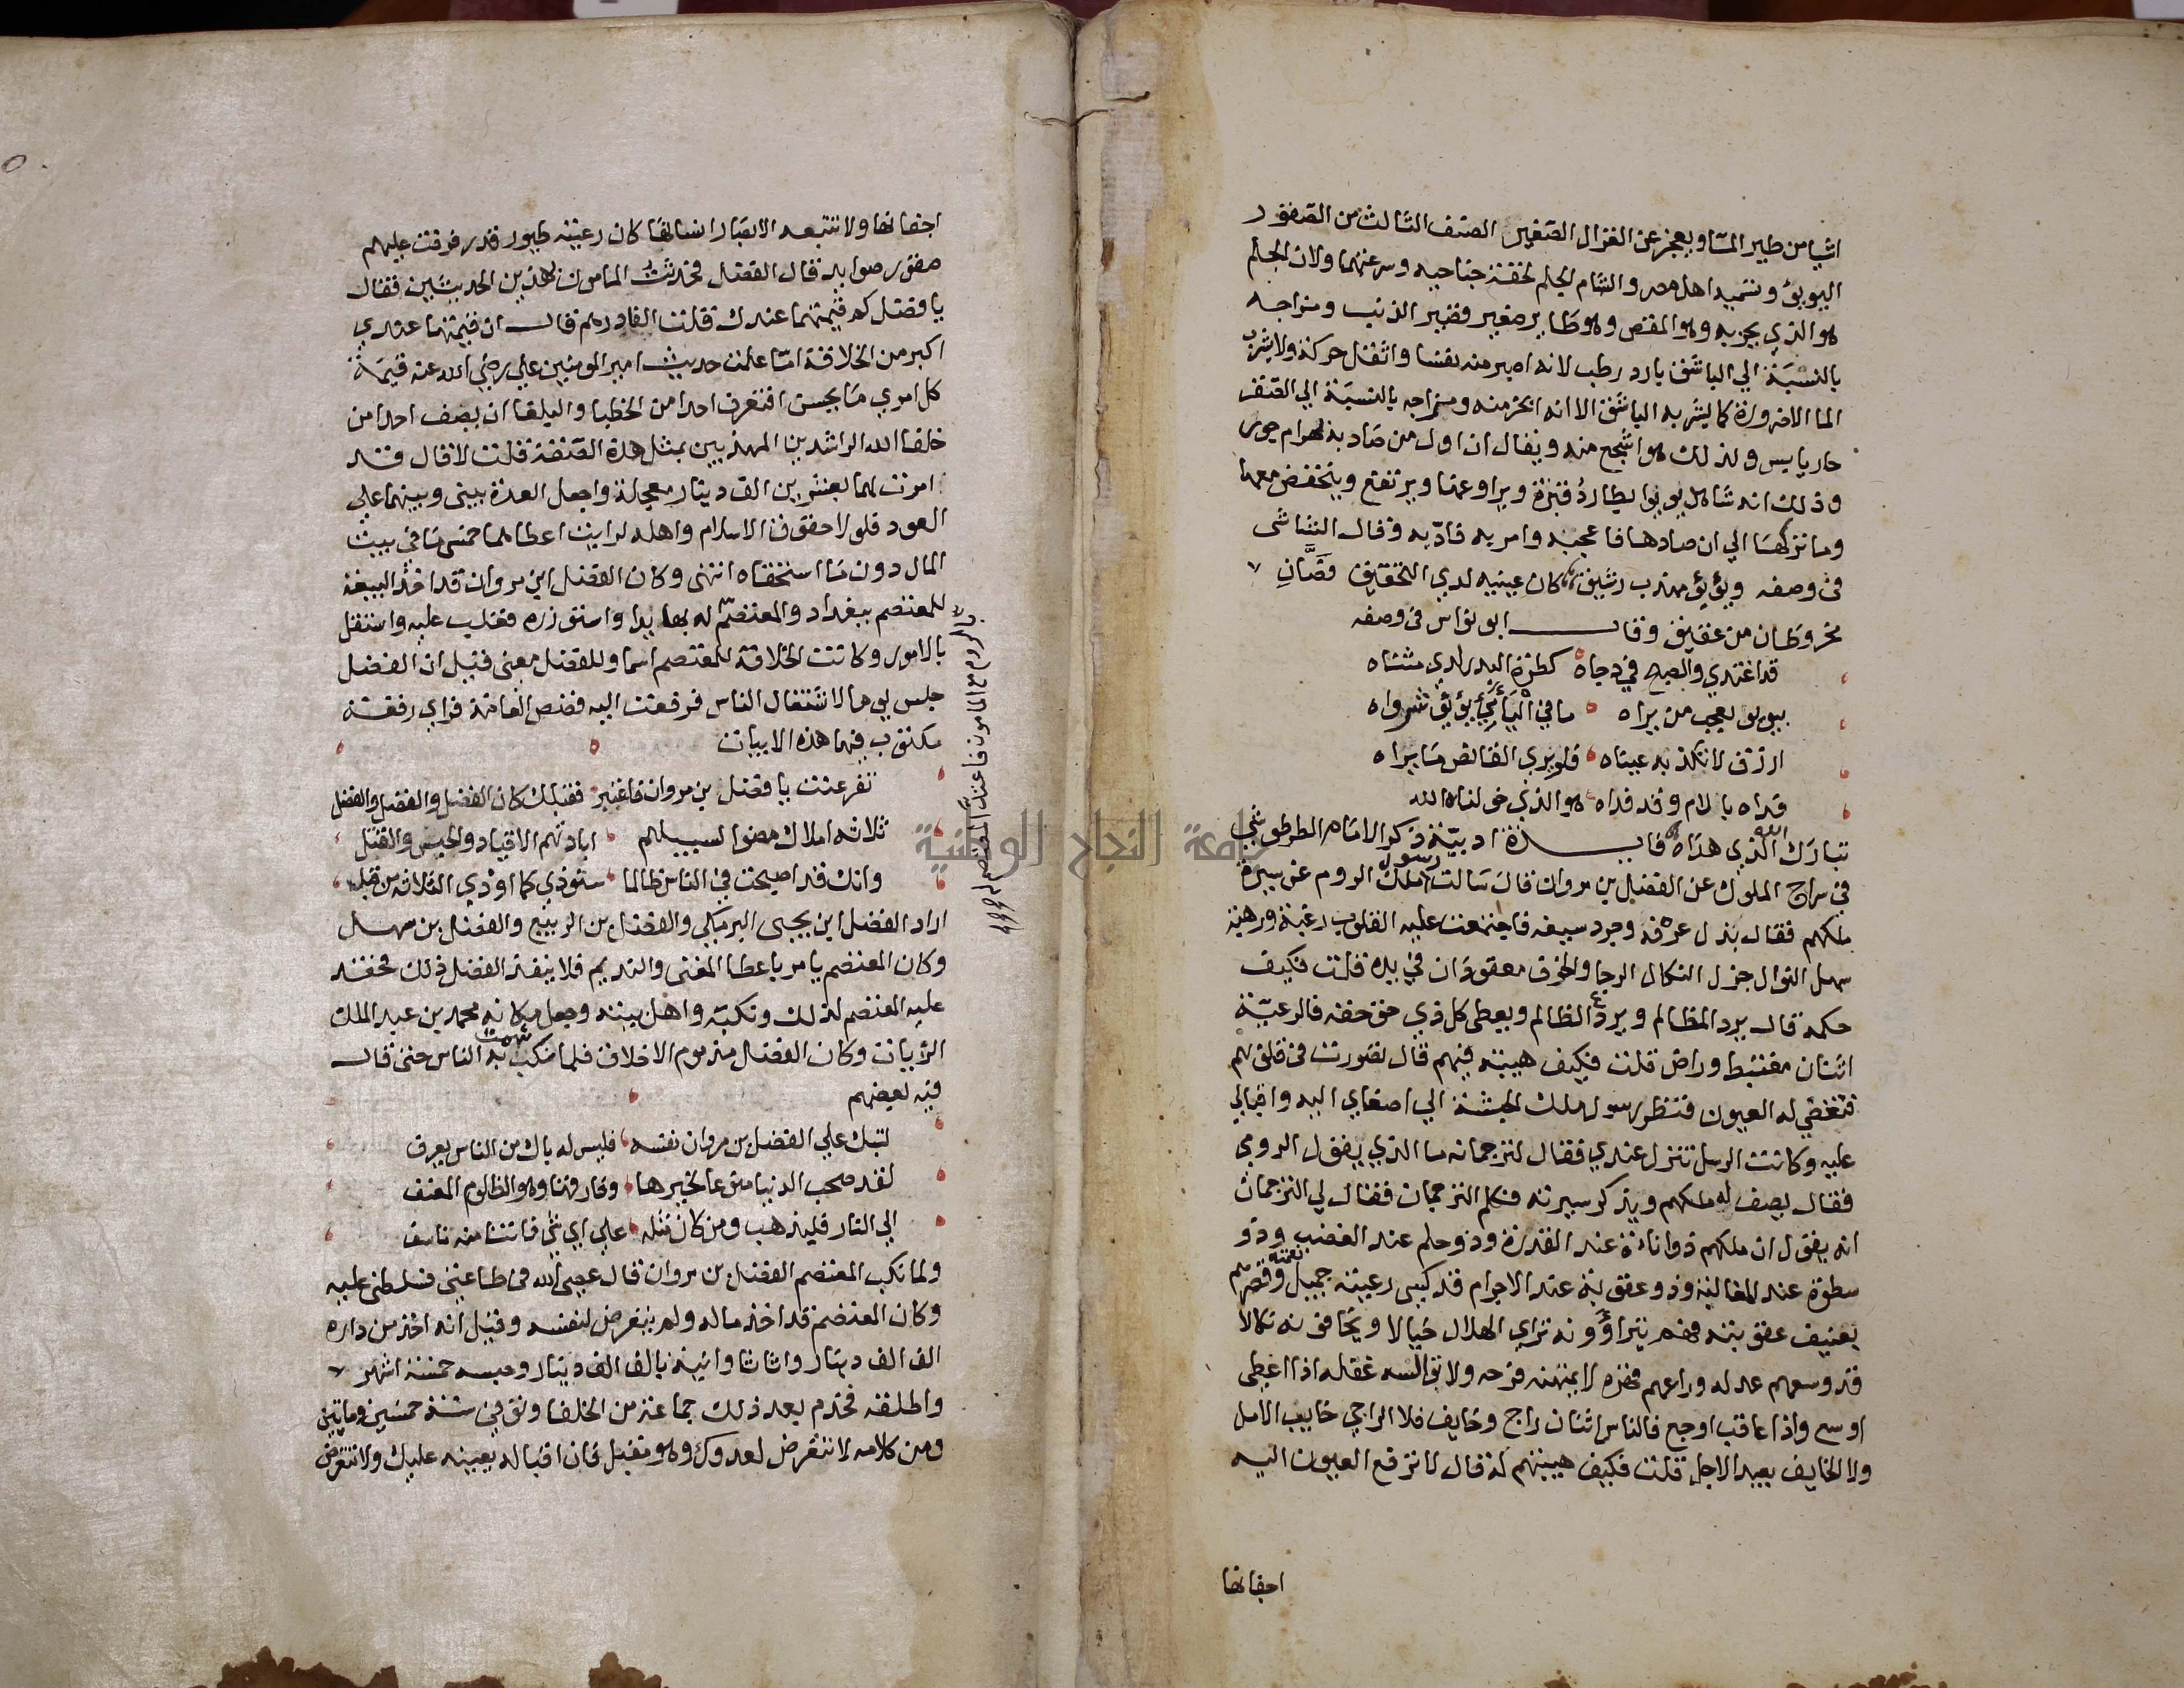 اشيا من طير الما ويعجز عن الغزال الصغير الصنف الثالث من الصقور
اليويؤ ويسميه اهل مصر والشام الجلم لخفة جناحيه وسرعتهما ولان الجلم
هو الذي يجز به وهو المقص وهو طاير صغير قصير الذنب ومزاجه
بالنسبة الي الباشق بارد رطب لانه اصبر منه نفسا واثقل حركة ولا يشرب
الما الا ضرورة كما يشربه الباشق الا انه ابخر منه ومزاجه بالنسبة الي الصقر
حار يابس ولذلك هو اشجع منه ويقال ان اول من صاد به بهرام جور
وذلك انه شاهد يويوا يطارد قنبرة ويراوغها ويرتفع وينخفض معها
وما تركها الي ان صادها فاعجبه وامر به فادبه وقال الناشى
فى وصفه ويؤيؤ مهذب رشيق كان عينيه لدي التحقيق فصان
مخروطان من عقيق وقال ابو نواس فى وصفه
قد اغتدي والصبح في دجاه كطرة البدر لدي مثناه
بيويو يعجب من يراه ما في اليأيئ يؤيؤ شرواه
ازرق لا تكذبه عيناه فلو يري القانص ما يراه
فداه بالام وقد فداه هو الذي خولناه الله
تبارك الله الذي هداه فايدة ادبية ذكر الامام الطرطوشي
في سراج الملوك عن الفضل بن مروان قال سالت رسول ملك الروم عن سيرة
ملكهم فقال بذل عرفه وجرد سيفه فاجتمعت عليه القلوب رغبة ورهبة
سهل النوال جزل النكال الرجا والخوف معقودان في يده قلت فكيف
حكمه قال يرد المظالم ويردع الظالم ويعطى كل ذي حق حقه فالرعية
اثنان مغتبط وراض قلت فكيف هيبته فيهم قال تصورت فى قلوبهم
فتغضي له العيون فنظر رسول ملك الحبشة الي اصغاي اليه واقبالي
عليه وكانت الرسل تنزل عندي فقال لترجمانه ما الذي يقول الرومي
فقال يصف له ملكهم ويذكر سيرته فكلم الترجمان فقال لي الترجمان
انه يقول ان ملكهم ذو اناءة عند القدرة وذو حلم عند الغضب وذو
سطوة عند المغالبة وذو عقوبة عند الاجرام قد كسى رعيته جميل نعمته وقصرهم
بعنيف عقوبته فهم يتراؤونه تراي الهلال خيالا ويخافونه نكالا
قد وسعهم عدله وراعهم قهره لا يمتهنه فرحه ولا توالسه غفله اذا اعطى
اوسع واذا عاقب اوجع فالناس اثنان راج وخايف فلا الراجي خايب الامل
ولا الخايف بعيد الاجل قلت فكيف هيبتهم له قال لا ترفع العيون اليه
اجفانها
اجفانها ولا تتبعه الابصار انسانها كان رعيته طيور قد رفرفت عليهم
صقور صوايد قال الفضل فحدثت المامون بهذين الحديثين فقال
يا فضل كم قيمتهما عندك قلت الفا درهم قال ان قيمتهما عندي
اكبر من الخلافة اما علمت حديث امير المومنين علي رضي الله عنه قيمة
كل امري ما يحسن افتعرف احدا من الخطبا والبلغا ان يصف احدا من
خلفا الله الراشدين المهذبين بمثل هذة الصفة قلت لا قال فقد
امرت لهما بعشرين الف دينار معجلة واجعل العدة بينى وبينهما علي
العود فلولا حقوق الاسلام واهله لرايت اعطاهما خمس ما في بيت
المال دون ما استحقاه انتهى وكان الفضل ابن مروان قد اخذ البيعة
للمعتصم ببغداد والمعتصم له بها يدا واستوزره فغلب عليه واستقل
بالامور وكانت الخلافة للمعتصم اسما وللفضل معنى فقيل ان الفضل
جلس يوما لاشتغال الناس فرفعت اليه قصص العامة فراي رقعة
مكتوب فيها هذه الابيات
تفرعنت يا فضل بن مروان فاعتبر فقبلك كان الفضل والفضل والفضل
ثلاثه املاك مضوا لسبيلهم ابادتهم الاقياد والحبس والقتل
وانك قد اصبحت في الناس ظالما ستوذي كما اوذي الثلاثه من قبل
اراد الفضل ابن يحيى البرمكي والفضل بن الربيع والفضل بن سهل
وكان المعتصم يامر باعطا المغنى والنديم فلا ينفذ الفضل ذلك فحقد
عليه المعتصم لذلك ونكبه واهل بيته وجعل مكانه محمد بن عبد الملك
الزيات وكان الفضل مذموم الاخلاق فلما نكب شمت به الناس حتى قال
فيه بعضهم
لتبك علي الفضل بن مروان نفسه فليس له باك من الناس يعرف
لقد صحب الدنيا منوعا لخيرها وفارقها وهو الظلوم المعنف
الي النار فليذهب ومن كان مثله علي اي شي فاتنا منه ناسف
ولما نكب المعتصم الفضل بن مروان قال عصى الله فى طاعتي فسلطنى عليه
وكان المعتصم قد اخذ ماله ولم يتعرض لنفسه وقيل انه اخذ من داره
الف الف دينار واثاثا وانية بالف الف دينار وحبسه خمسة اشهر
واطلقه فخدم بعد ذلك جماعة من الخلفا وتوفي سنة خمسين وماتين
ومن كلامه لا تتعرض لعدوك وهو مقبل فان اقباله يعينه عليك ولا تتعرض
جامعة النجاح الوطنية